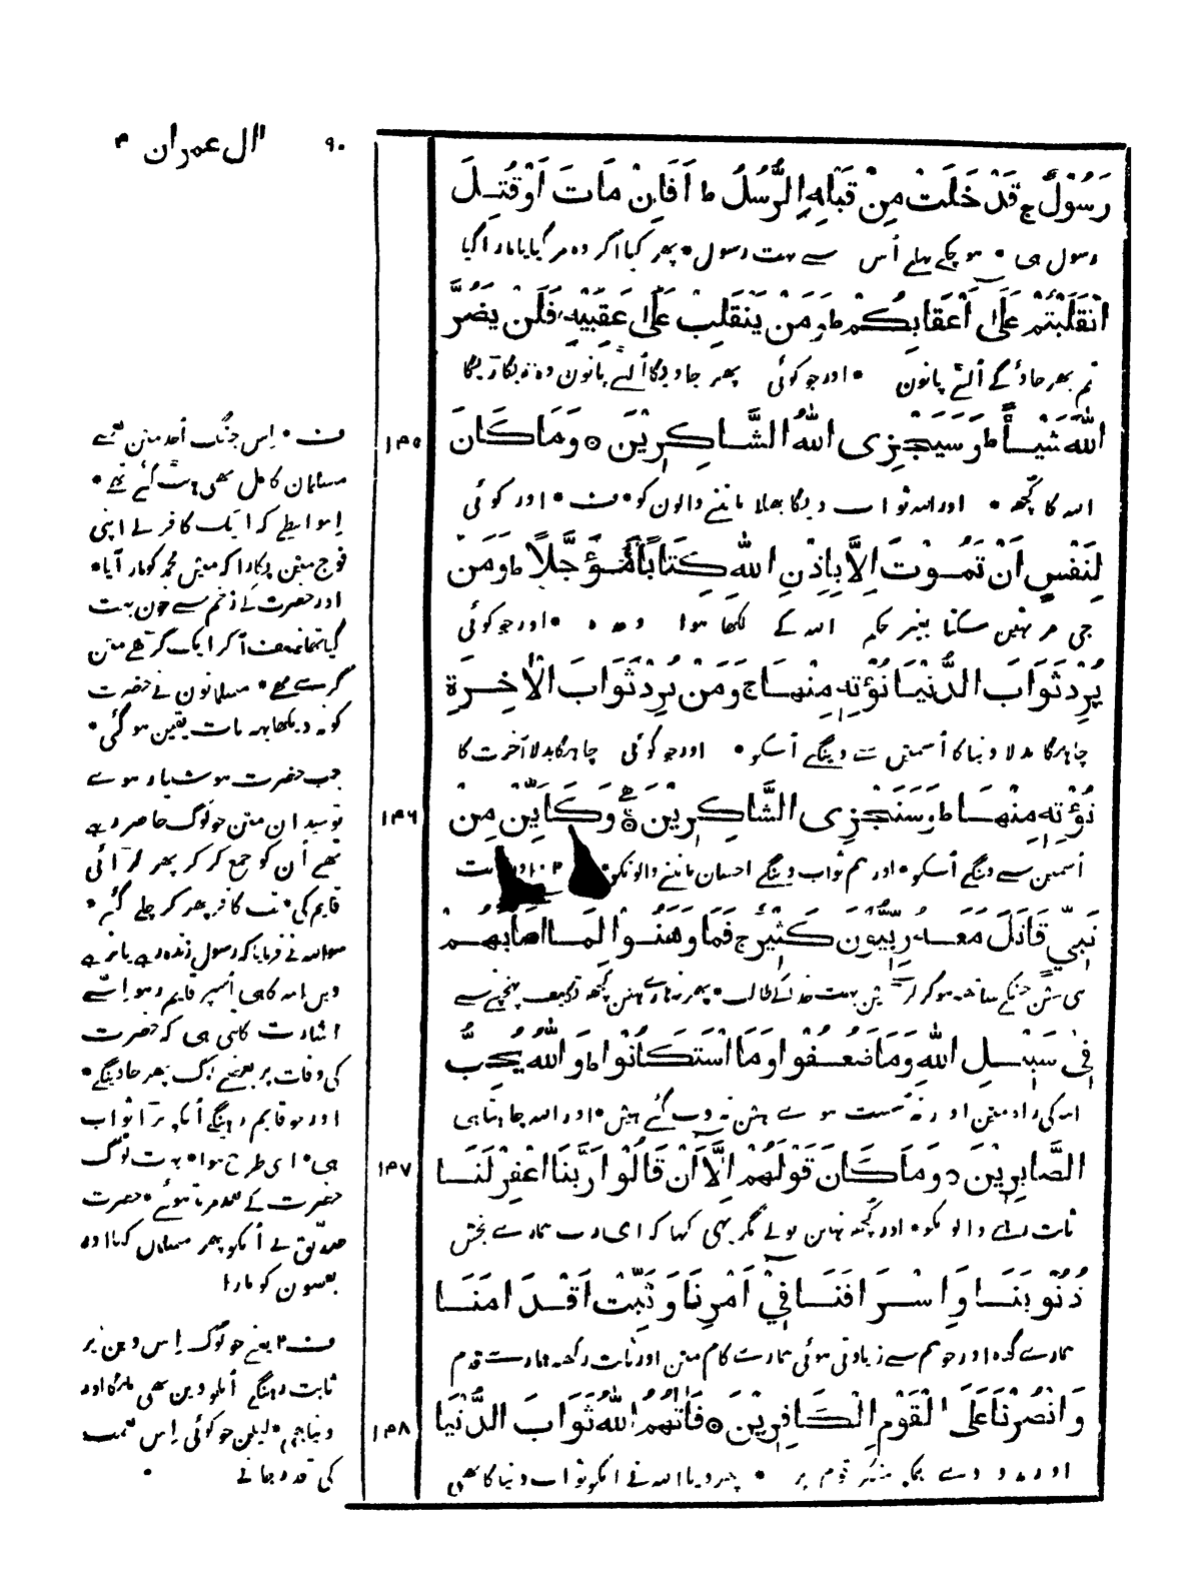 ٩٠ اٰل عمران ٣
رَسُوْلٌ ج قَدْ خَلَتْ مِنْ قَبْلِهِ الرُّسُلُ ط اَفَاِنْ مَاتَ اَوْ قُتِلَ
رسول ہی • ہو چکے پہلے اُس سے بہت رسول • پھر کیا اگر وہ مر گیا یا مارا گیا
انْقَلَبْتُمْ عَلٰى اَعْقَابِكُمْ ط وَ مَنْ يَنْقَلِبْ عَلٰى عَقِبَيْهِ فَلَنْ يَضُرَّ
تم پھر جاؤ گے اُلٹے پانون • اور جو کوئی پھر جاویگا اُلٹے پانون وہ نہ بگاڑیگا
اللّٰهَ شَيْـًٔا ط وَ سَيَجْزِى اللّٰهُ الشَّاكِرِيْنَ ○ وَ مَا كَانَ ١٤٥
اللہ کا کچھ • اور اللہ ثواب دیگا بھلا ماننے والون کو • ف • اور کوئی
لِنَفْسٍ اَنْ تَمُوْتَ اِلَّا بِاِذْنِ اللّٰهِ كِتَابًا مُؤَجَّلًا ط وَ مَنْ
جی مر نہین سکتا بغیر حکم اللہ کے لکھا ہوا وعدہ • اور جو کوئی
يُرِدْ ثَوَابَ الدُّنْيَا نُؤْتِهِ مِنْهَا ج وَ مَنْ يُرِدْ ثَوَابَ الْاٰخِرَةِ
چاہیگا بدلا دنیا کا اُسمین سے دینگے اُسکو • اور جو کوئی چاہیگا بدلا آخرت کا
نُؤْتِهِ مِنْهَا ط وَ سَنَجْزِى الشَّاكِرِيْنَ ○ وَ كَاَيِّنْ مِنْ ١٤٦
اُسمین سے دینگے اُسکو • اور ہم ثواب دینگے احسان ماننے والونکو •
نَبِىٍّ قَاتَلَ مَعَهُ رِبِّيُّوْنَ كَثِيْرٌ ج فَمَا وَهَنُوْا لِمَا اَصَابَهُمْ
ہین جنکے ساتھ ہو کر لڑے ہین بہت خدا کے طالب • پھر نہ ہارے ہین کچھ تکلیف پہنچنے سے
فِىْ سَبِيْلِ اللّٰهِ وَ مَا ضَعُفُوْا وَ مَا اسْتَكَانُوْا ط وَ اللّٰهُ يُحِبُّ
اللہ کی راہ مین اور نہ سست ہوے ہین نہ دب گئے ہین • اور اللہ چاہتا ہی
الصَّابِرِيْنَ ○ وَ مَا كَانَ قَوْلَهُمْ اِلَّا اَنْ قَالُوْا رَبَّنَا اغْفِرْ لَنَا ١٤٧
ثابت رہنے والونکو • اور کچھ نہین بولے مگر یہی کہا کہ ای رب ہمارے بخش
ذُنُوْبَنَا وَ اِسْرَافَنَا فِىْ اَمْرِنَا وَ ثَبِّتْ اَقْدَامَنَا
ہمارے گناہ اور جو ہم سے زیادتی ہوئی ہمارے کام مین اور ثابت رکھہ ہمارے قدم
وَ انْصُرْنَا عَلَى الْقَوْمِ الْكَافِرِيْنَ ○ فَاٰتٰهُمُ اللّٰهُ ثَوَابَ الدُّنْيَا ١٤٨
اور مدد دے ہمکو منکر قوم پر • پھر دیا اللہ نے انکو ثواب دنیا کا بھی
ف • اِس جنگ اُحد مین بعضے
مسلمان کامل بھی ہٹ گئے تھے •
اِسواسطے کہ ایک کافر نے اپنی
فوج مین پکارا کہ مین محمد کو مار آیا •
اور حضرت کے زخم سے خون بہت
گیا تھا ضعف آکر ایک گڑھے مین
گرے تھے • مسلمانون نے حضرت
کو نہ دیکھا یہہ بات یقین ہو گئی •
جب حضرت ہوشیار ہوے
تو میدان مین جو لوگ حاضر رہے
تھے اُن کو جمع کر کر پھر لڑائی
قایم کی • تب کافر پھر کر چلے گئے •
سو اللہ نے فرمایا کہ رسول زندہ رہے یا نہ رہے
دین اللہ کا ہی اُسپر قایم رہو
اشارت نکلتی ہی کہ حضرت
کی وفات پر بعضے لوگ پھر جاوینگے •
اور جو قایم رہینگے اُنکو بڑا ثواب
ہی • اسی طرح ہوا • بہت لوگ
حضرت کے بعد مرتد ہوئے • حضرت
صدیق نے اُنکو پھر مسلمان کیا اور
بعضون کو مارا
ف ٢ یعنے جو لوگ اِس دین پر
ثابت رہینگے اُنکو دین بھی ملیگا اور
دنیا بھی • لیکن جو کوئی اِس نعمت
کی قدر جانے •